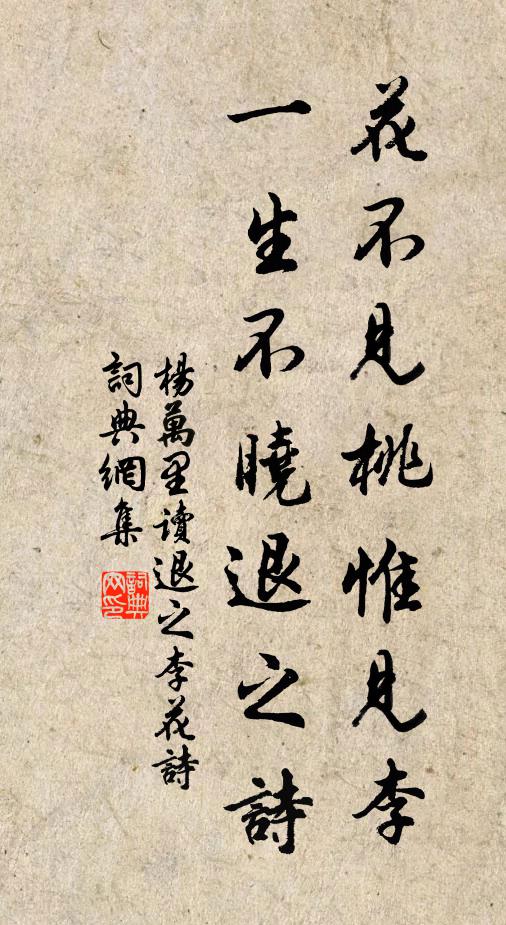 花不見桃惟見李
一生不曉退之詩
楊萬里讀退之李花詩
詞典網集
詞典网印